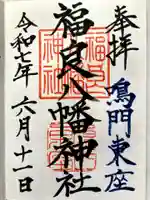 奉拝
鳴門東座
福良八幡神社
令和七年六月十一日